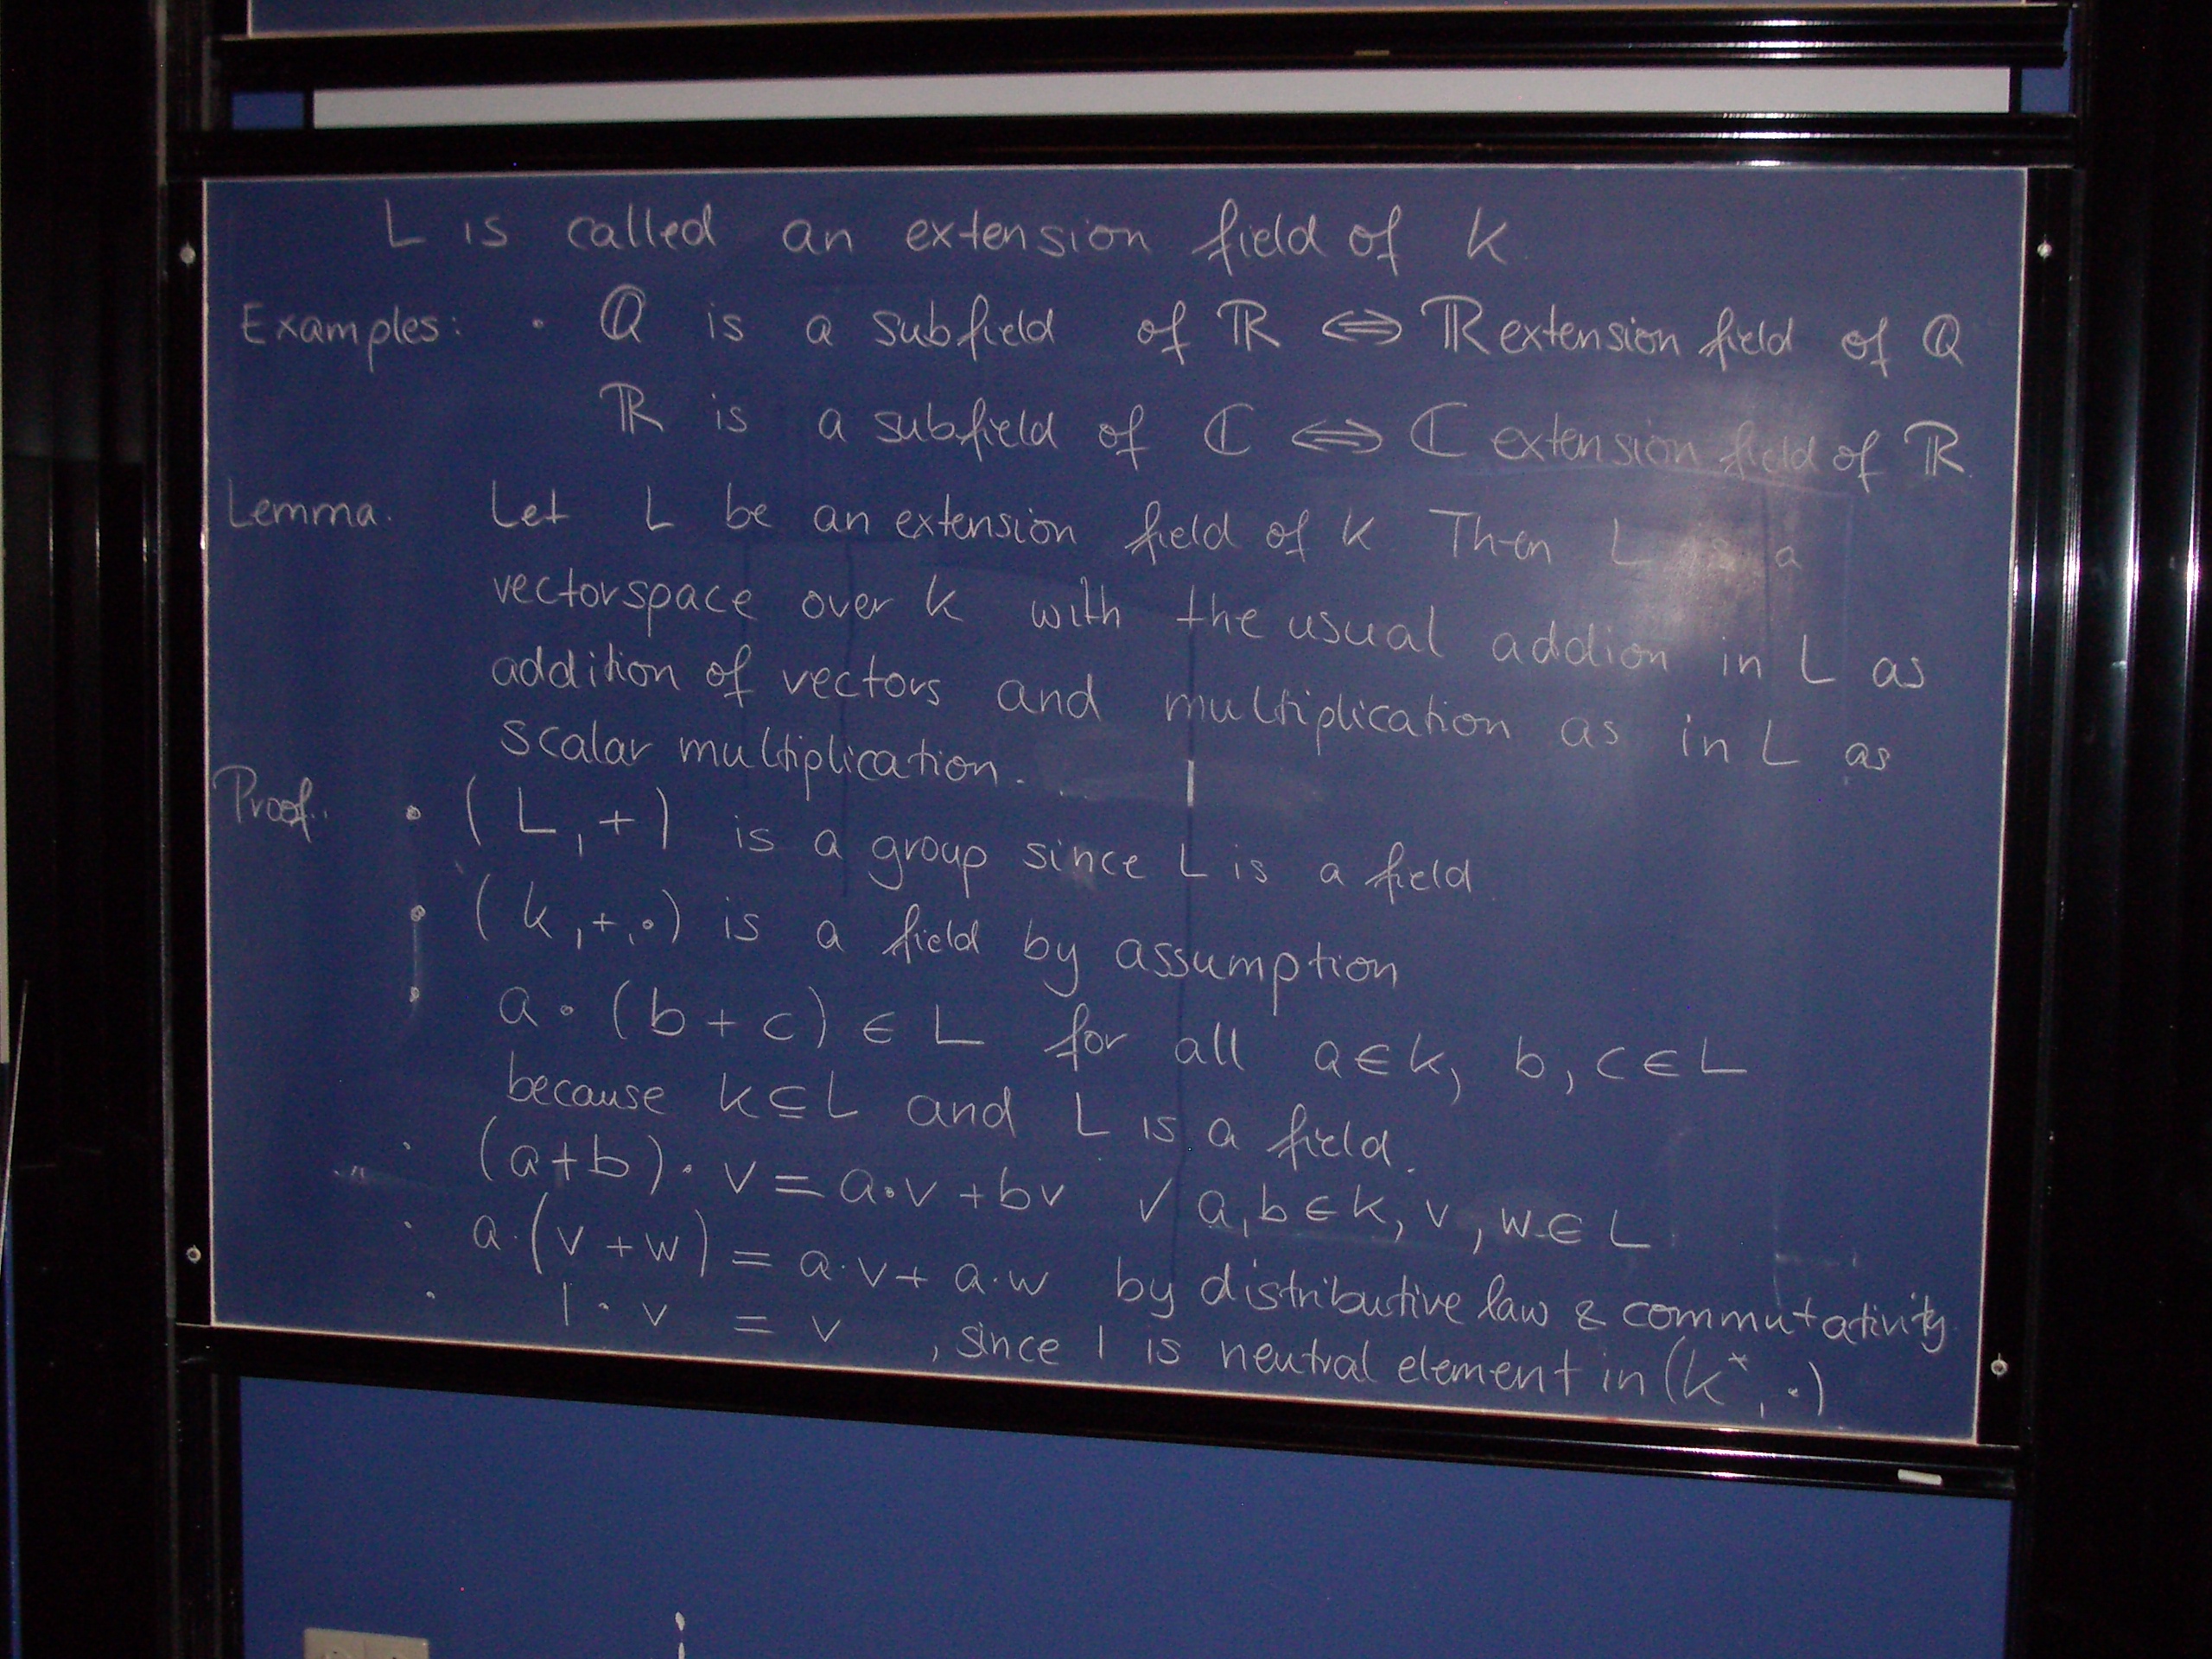 L is called an extension field of k.
Examples: · ℚ is a subfield of ℝ ⇔ ℝ extension field of ℚ
ℝ is a subfield of ℂ ⇔ ℂ extension field of ℝ.
Lemma. Let L be an extension field of k Then L is a
vectorspace over k with the usual addion in L as
addition of vectors and multiplication as in L as
scalar multiplication.
Proof. • (L, +) is a group since L is a field.
• (k, +, ·) is a field by assumption
• a · (b + c) ∈ L for all a ∈ k, b, c ∈ L
because k ⊆ L and L is a field.
· (a+b) · v = a·v + bv ✓ a, b ∈ k, v, w ∈ L
· a·(v + w) = a·v + a·w by distributive law & commutativity.
· 1 · v = v , since 1 is neutral element in (k*, ·)